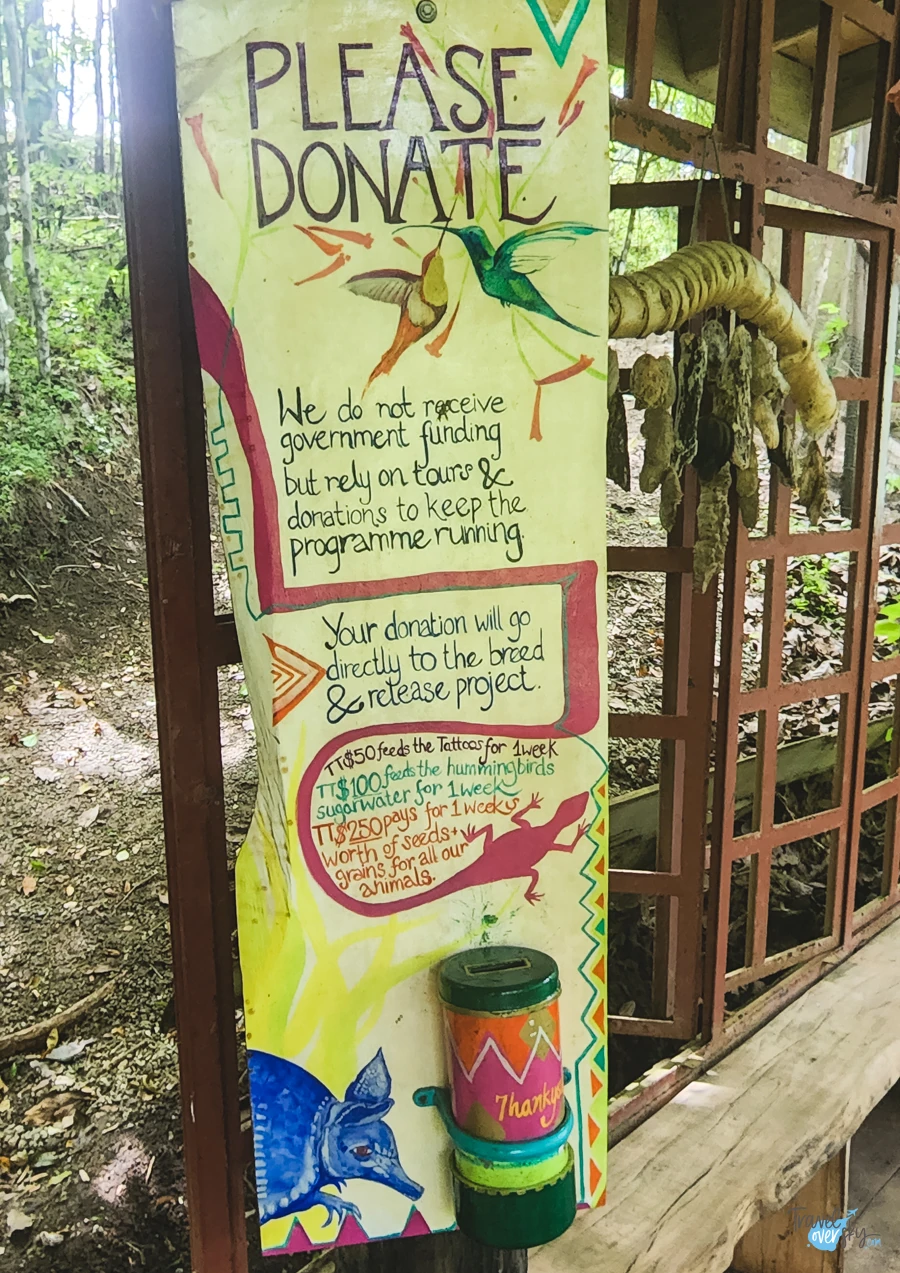 PLEASE
DONATE
We do not receive
government funding
but rely on tours &
donations to keep the
programme running.
Your donation will go
directly to the breed
& release project.
TT$50 feeds the Tattoos for 1 week
TT$100 feeds the hummingbirds
sugarwater for 1 week
TT$250 pays for 1 weeks
worth of seeds +
grains for all our
animals.
Thankyou
travel
over
sky
.com